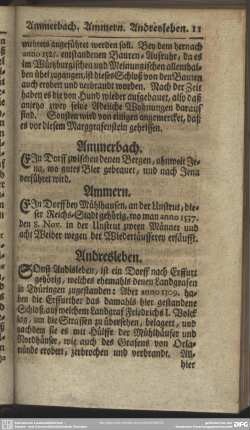 Ammerbach. Ammern. Andresleben. 11
mehrers angeführet werden soll. Bey dem hernach
anno 1525. entstandenen Bauren-Aufruhr, da es
im Würtzburgischen und Meinungischen allenthal-
den übel zugangen, ist dieses Schloß von den Bauren
auch erobert und verbrannt worden. Nach der Zeit
haben es die von Hund wieder aufgebauet, also daß
anjetzo zwey feine Adeliche Wohnungen darauf
sind. Sonsten wird von einigen angemercket, daß
es vor diesem Marggrafenstein geheissen.
Ammerbach.
EIn Dorff zwischen denen Bergen, ohnweit Je-
na, wo gutes Bier gebrauet, und nach Jena
verführet wird.
Ammern.
EIn Dorff bey Mühlhausen, an der Unstrut, die-
ser Reichs-Stadt gehörig, wo man anno 1537.
den 8. Nov. in der Unstrut zween Männer und
acht Weiber wegen der Wiedertäufferey ersäufft.
Andresleben.
SOnst Andisleben, ist ein Dorff nach Erffurt
gehörig, welches ehemahls denen Landgrafen
in Thüringen zugestanden: Aber anno 1309. ha-
ben die Erffurther das damahls hier gestandene
Schloß auf welchem Landgraf Friedrichs I. Volck
lag, um die Strassen zu übersehen, belagert, und
nachdem sie es mit Hülffe der Mühlhäuser und
Nordhäuser, wie auch des Grafens von Orla-
münde erobert, zerbrochen und verbrandt. All-
hier